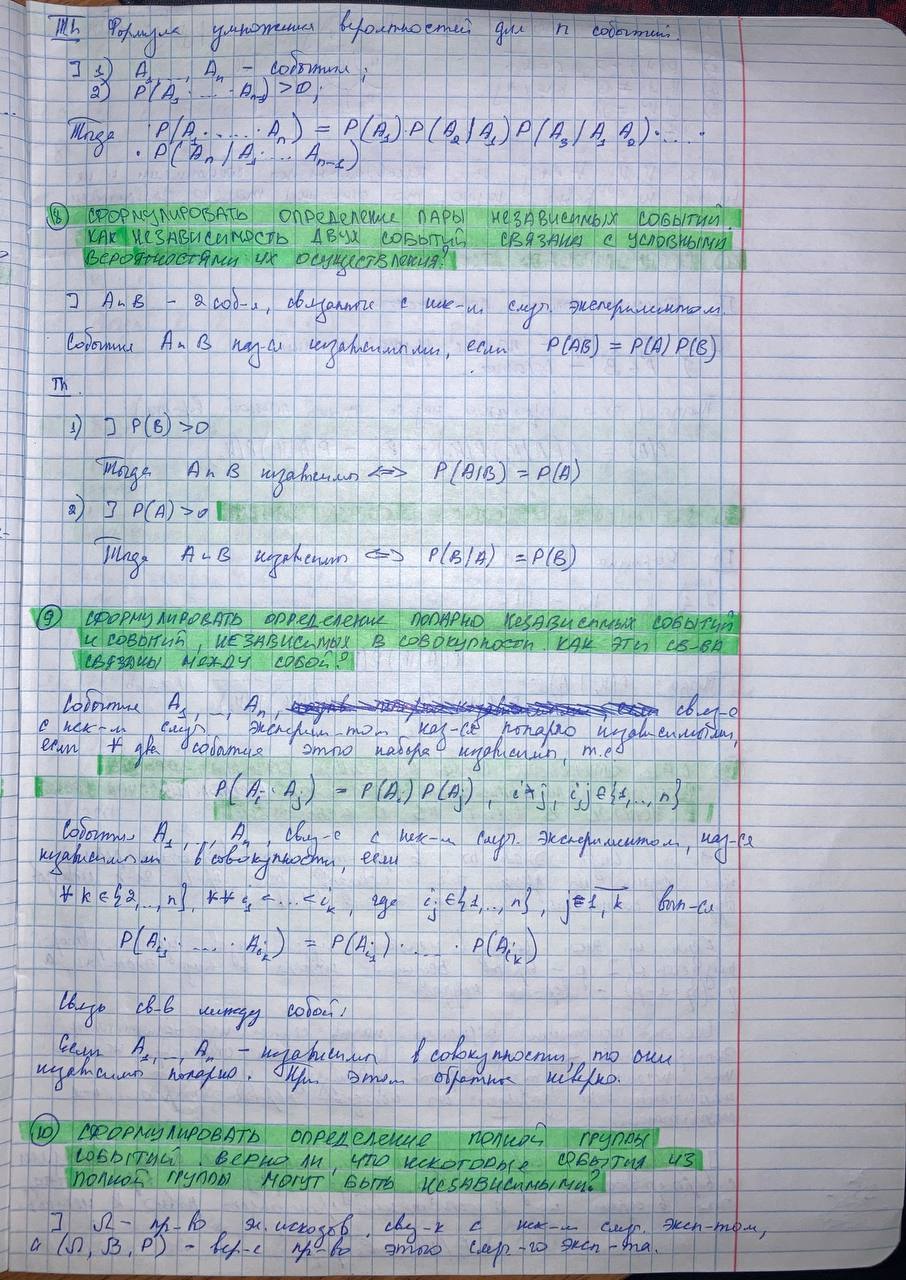 Th Формула умножения вероятностей для n событий.
] 1) A₁, ..., Aₙ – события;
2) P(A₁ · ... · Aₙ₋₁) > 0;
Тогда P(A₁ · ... · Aₙ) = P(A₁) · P(A₂ | A₁) P(A₃ | A₁ A₂) · ... ·
· P(Aₙ | A₁ · ... Aₙ₋₁)
⑧ СФОРМУЛИРОВАТЬ ОПРЕДЕЛЕНИЕ ПАРЫ НЕЗАВИСИМЫХ СОБЫТИЙ.
КАК НЕЗАВИСИМОСТЬ ДВУХ СОБЫТИЙ СВЯЗАНА С УСЛОВНЫМИ
ВЕРОЯТНОСТЯМИ ИХ ОСУЩЕСТВЛЕНИЯ?
] A и B – 2 соб-я, связанные с нек-м случ. экспериментом.
События A и B наз-ся независимыми, если P(AB) = P(A) P(B)
Th.
1) ] P(B) > 0
Тогда A и B независимы <=> P(A|B) = P(A)
2) ] P(A) > 0
Тогда A и B независимы <=> P(B|A) = P(B)
⑨ СФОРМУЛИРОВАТЬ ОПРЕДЕЛЕНИЕ ПОПАРНО НЕЗАВИСИМЫХ СОБЫТИЙ
И СОБЫТИЙ, НЕЗАВИСИМЫХ В СОВОКУПНОСТИ. КАК ЭТИ СВ-ВА
СВЯЗАНЫ МЕЖДУ СОБОЙ?
События A₁, ..., Aₙ, связ-е
с нек-м случ. эксперим-том наз-ся попарно независимыми,
если ∀ два события этого набора независимы, т.е.
P(Aᵢ · Aⱼ) = P(Aᵢ) P(Aⱼ), i≠j, i,j ∈ {1, ..., n}
События A₁, ..., Aₙ, связ-е с нек-м случ. экспериментом, наз-ся
независимыми в совокупности, если
∀ k ∈ {2, ..., n}, ∀∀ i₁ < ... < iₖ, где iⱼ ∈ {1, ..., n}, j=1, k вып-ся
P(Aᵢ₁ · ... · Aᵢₖ) = P(Aᵢ₁) · ... · P(Aᵢₖ)
Связь св-в между собой:
Если A₁, ..., Aₙ – независимы в совокупности, то они
независимы попарно. При этом обратное неверно.
⑩ СФОРМУЛИРОВАТЬ ОПРЕДЕЛЕНИЕ ПОЛНОЙ ГРУППЫ
СОБЫТИЙ. ВЕРНО ЛИ, ЧТО НЕКОТОРЫЕ СОБЫТИЯ ИЗ
ПОЛНОЙ ГРУППЫ МОГУТ БЫТЬ НЕЗАВИСИМЫМИ?
] Ω – пр-во эл. исходов, свя-х с нек-м случ. эксп-том,
а (Ω, B, P) – вер-е пр-во этого случ-го эксп-та.